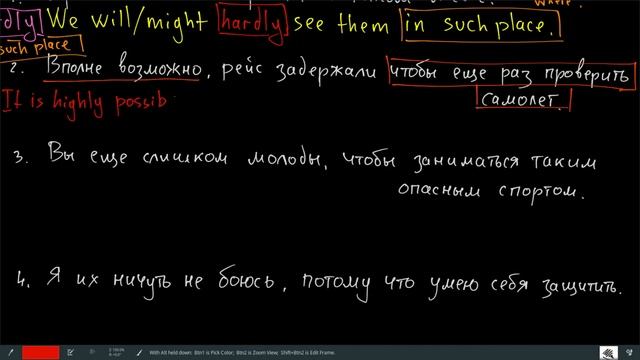 where.
dly We will/might hardly see them in such place.
such place
2. Вполне возможно, рейс задержали чтобы еще раз проверить
самолет.
It is highly possib
3. Вы еще слишком молоды, чтобы заниматься таким
опасным спортом.
4. Я их ничуть не боюсь, потому что умею себя защитить.
With Alt held down: Btn1 is Pick Color; Btn2 is Zoom View; Shift+Btn2 is Edit Frame.